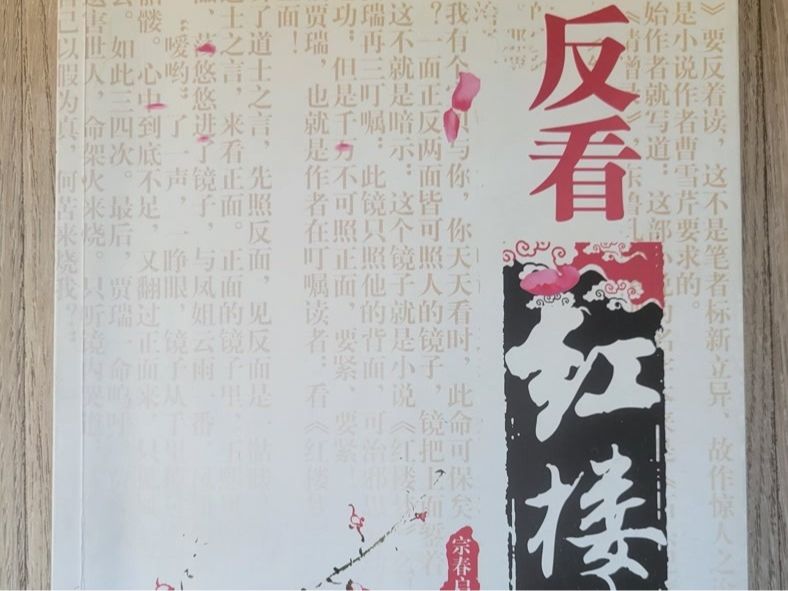 反看
红楼
宗春
》要反着读，这不是笔者标新立异、故作惊人之
是小说作者曹雪芹要求的。
始作者就写道：这部小说
《情僧录》，东鲁孔
我有个 与你，你天天看时，此命可保矣
？一面正反两面皆可照人的镜子，镜把上面錾着
这不就是暗示：这个镜子就是小说《红楼梦
瑞再三叮嘱：此镜只照他的背面，可治邪
功；但是千万不可照正面，要紧、要紧！
贾瑞，也就是作者在叮嘱读者：看《红楼梦
面！
了道士之言，先照反面，见反面是一骷髅
士之言，来看正面。正面的镜子里，王熙
，荡悠悠进了镜子，与凤姐云雨一番
“嗳哟”了一声，一睁眼，镜子从手
骷髅。心中到底不足，又翻过正面来，只见
去。如此三四次。最后，贾瑞一命呜呼
害世人，命架火来烧。只听镜内哭道
自己以假为真，何苦来烧我？”